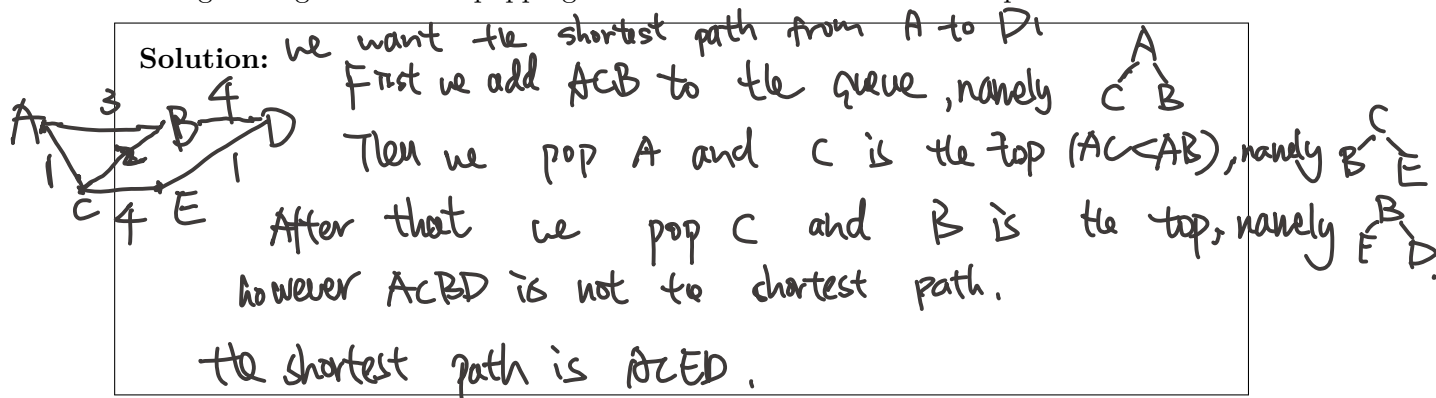 Solution: we want the shortest path from A to D.
First we add ACB to the queue, namely A C B
A 3 B 4 D 1 2 1 C 4 E
Then we pop A and C is the top (AC<AB), namely C B E
After that we pop C and B is the top, namely B E D.
however ACBD is not the shortest path.
the shortest path is ACED.